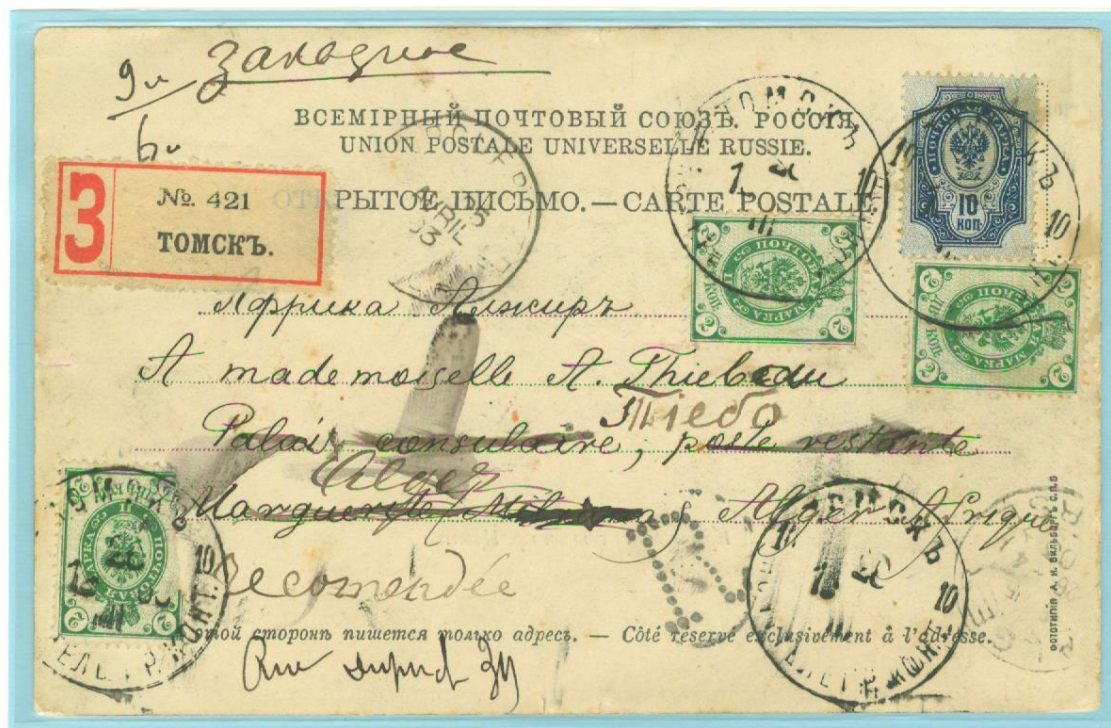 Заказное
ВСЕМІРНЫЙ ПОЧТОВЫЙ СОЮЗЪ. РОССІЯ.
UNION POSTALE UNIVERSELLE RUSSIE.
З
№. 421
ТОМСКЪ.
ОТКРЫТОЕ ПИСЬМО. — CARTE POSTALE
ПОЧТОВАЯ МАРКА
10
КОП
ТОМСКЪ
AVRIL
03
Африка Алжиръ
A mademoiselle A. Thiebau
Тіебо
Palais consulaire, poste restante
Alger
Marguerite Alger Afrique
Recomendée
R
ТОМСКЪ
10
этой сторонѣ пишется только адресъ. — Côté réservé exclusivement à l'adresse.
Rue
ФОТОТИПІЯ А. И. ВИЛЬБОРГЪ С.П.Б